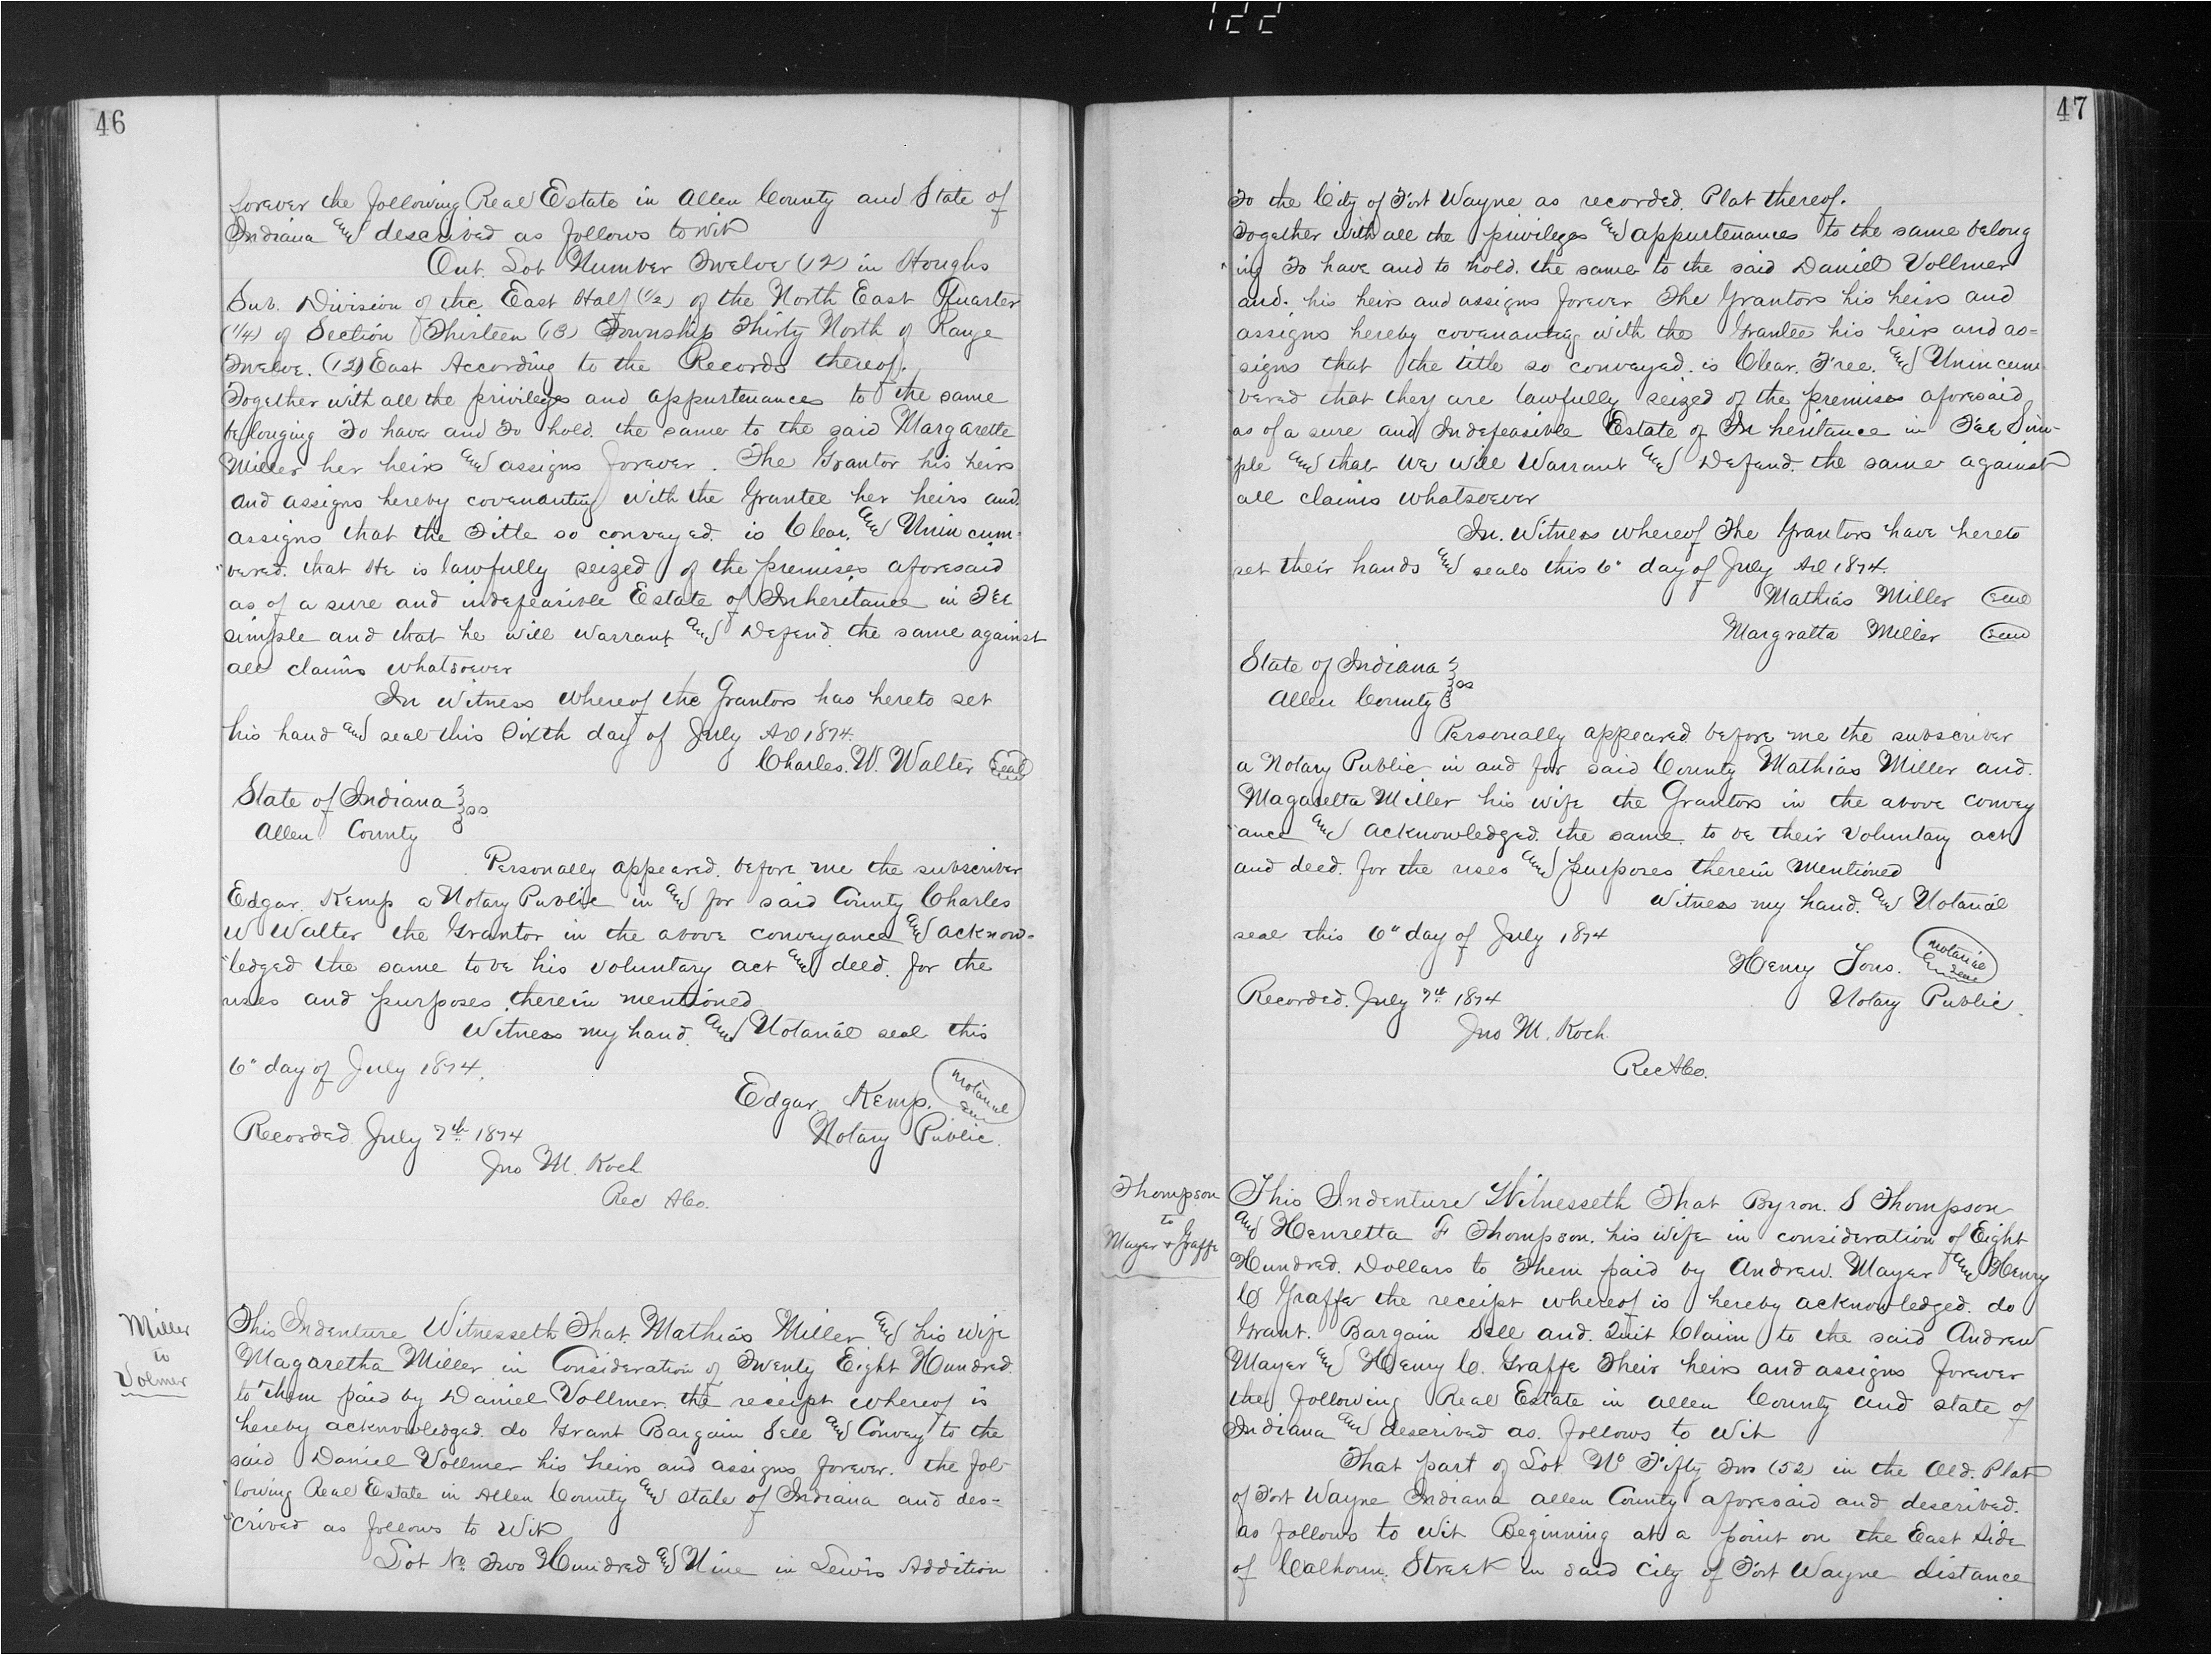 122
46
forever the following Real Estate in Allen County and State of
Indiana and described as follows to wit
Out. Lot Number Twelve (12) in Houghs
Sub. Division of the East Half (1/2) of the North East Quarter
(1/4) of Section Thirteen (13) Township Thirty North of Range
Twelve. (12) East According to the Records thereof.
Together with all the privileges and appurtenances to the same
belonging To have and To hold. the same to the said Margarette
Miller her heirs and assigns forever. The Grantor his heirs
and assigns hereby covenanting with the Grantee her heirs and.
assigns that the Title so conveyed. is Clear. and Unincum-
"bered. that He is lawfully seized of the premises aforesaid
as of a sure and indefeasible Estate of Inheritance in Fee
simple and that he will warrant and Defend. the same against
all claims whatsoever
In witness whereof the Grantors has hereto set
his hand and seal this Sixth day of July AD 1874.
Charles. W. Walter Seal
State of Indiana } ss
Allen County
Personally appeared. before me the subscriber
Edgar. Kemp a Notary Public in and for said County Charles
W Walter the Grantor in the above conveyance and acknow-
"ledged the same to be his voluntary act and deed. for the
uses and purposes therein mentioned
Witness my hand. and Notarial seal this
6" day of July 1874.
Edgar Kemp. Notarial Seal
Notary Public.
Recorded July 7th 1874
Jno M. Koch
Rec A Co.
Miller
to
Volmer
This Indenture Witnesseth That. Mathias Miller and his wife
Magaretha Miller in Consideration of Twenty Eight Hundred.
to them paid by Daniel Vollmer. the receipt whereof is
hereby acknowledged. do Grant Bargain Sell and Convey to the
said Daniel Vollmer his heirs and assigns forever. the fol-
"lowing Real Estate in Allen County and state of Indiana and des-
"cribed as follows to Wit
Lot No Two Hundred and Nine in Lewis Addition
47
To the City of Fort Wayne as recorded. Plat thereof.
Together with all the privileges and appurtenances to the same belong
"ing To have and to hold. the same to the said Daniel Vollmer
and. his heirs and assigns forever The Grantors his heirs and
assigns hereby covenanting with the Grantee his heirs and as-
signs that the title so conveyed. is Clear. Free. and Unincum
"bered that they are lawfully seized of the premises aforesaid
as of a sure and Indefeasible Estate of Inheritance in Fee Sim-
"ple and that We will Warrant and Defend. the same against
all claims whatsoever
In. Witness whereof The Grantors have hereto
set their hands and seals this 6" day of July AD 1874.
Mathias Miller Seal
Margratta Miller Seal
State of Indiana } ss
Allen County
Personally appeared before me the subscriber
a Notary Public in and for said County Mathias Miller and.
Magaretta Miller his wife the Grantors in the above convey
"ance and acknowledged. the same to be their voluntary act
and deed. for the uses and purposes therein mentioned
Witness my hand. and Notarial
seal this 6" day of July 1874
Henry Jons. Notarial Seal
Notary Public.
Recorded. July 7th 1874
Jno M. Koch.
Rec A Co.
Thompson
to
Mayer & Graffe
This Indenture Witnesseth That Byron. S Thompson
and Henretta F Thompson. his wife in consideration of Eight
Hundred. Dollars to Them paid by Andrew. Mayer and Henry
C Graffe the receipt whereof is hereby acknowledged. do
Grant. Bargain Sell and. Quit Claim to the said Andrew
Mayer and Henry C. Graffe Their heirs and assigns forever
the following Real Estate in Allen County and state of
Indiana and described as. follows to Wit
That part of Lot No Fifty Two (52) in the Old. Plat
of Fort Wayne Indiana Allen County aforesaid and described.
as follows to wit Beginning at a point on the East Side
of Calhoun. Street in said City of Fort Wayne distance